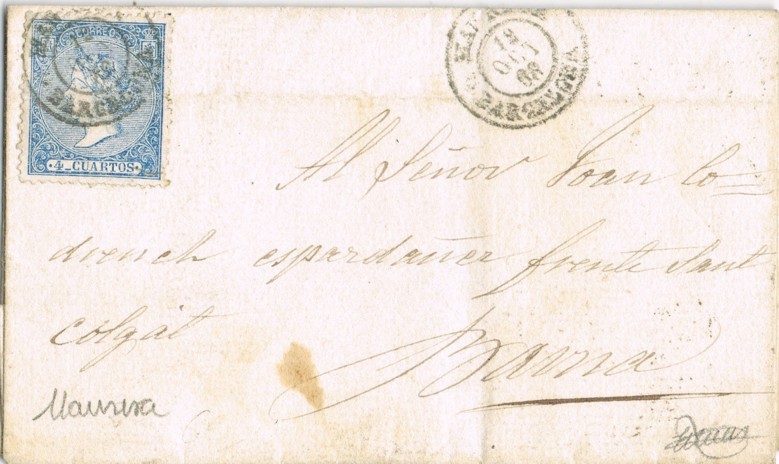 CORREOS
4 CUARTOS
BARCELONA
18
OCT
66
BARCELONA
Al Señor Joan Co=
drench espardañer frente Sant
Colgat
Barna
Manresa